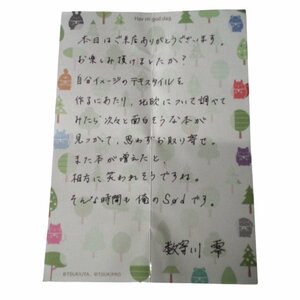 Hav en god dag
本日はご来店ありがとうございます。
お楽しみ頂けましたか？
自分イメージのテキスタイルを
作るにあたり、北欧について調べて
みたら次々と面白そうな本が
見つかって、思わずお取り寄せ。
また本が増えたと、
相方に笑われそうですね。
そんな時間も俺のSødです。
数寄川 零
©TSUKIUTA. ©TSUKIPRO